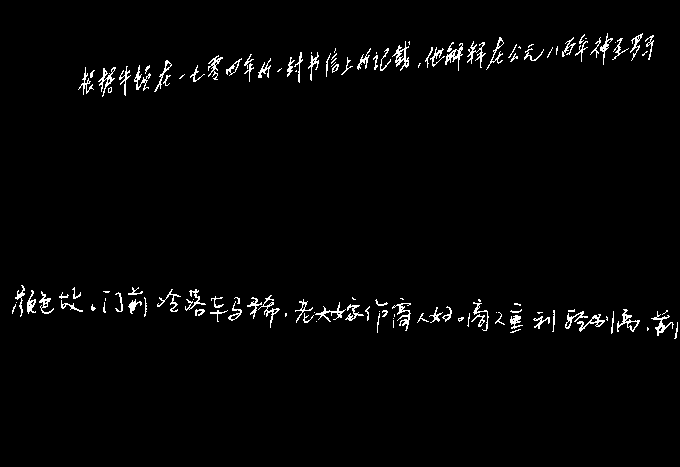 根据牛顿在一七零四年的一封书信上的记载，他解释在公元八百年神圣罗马
颜色故。门前冷落车马稀，老大嫁作商人妇。商人重利轻别离，前